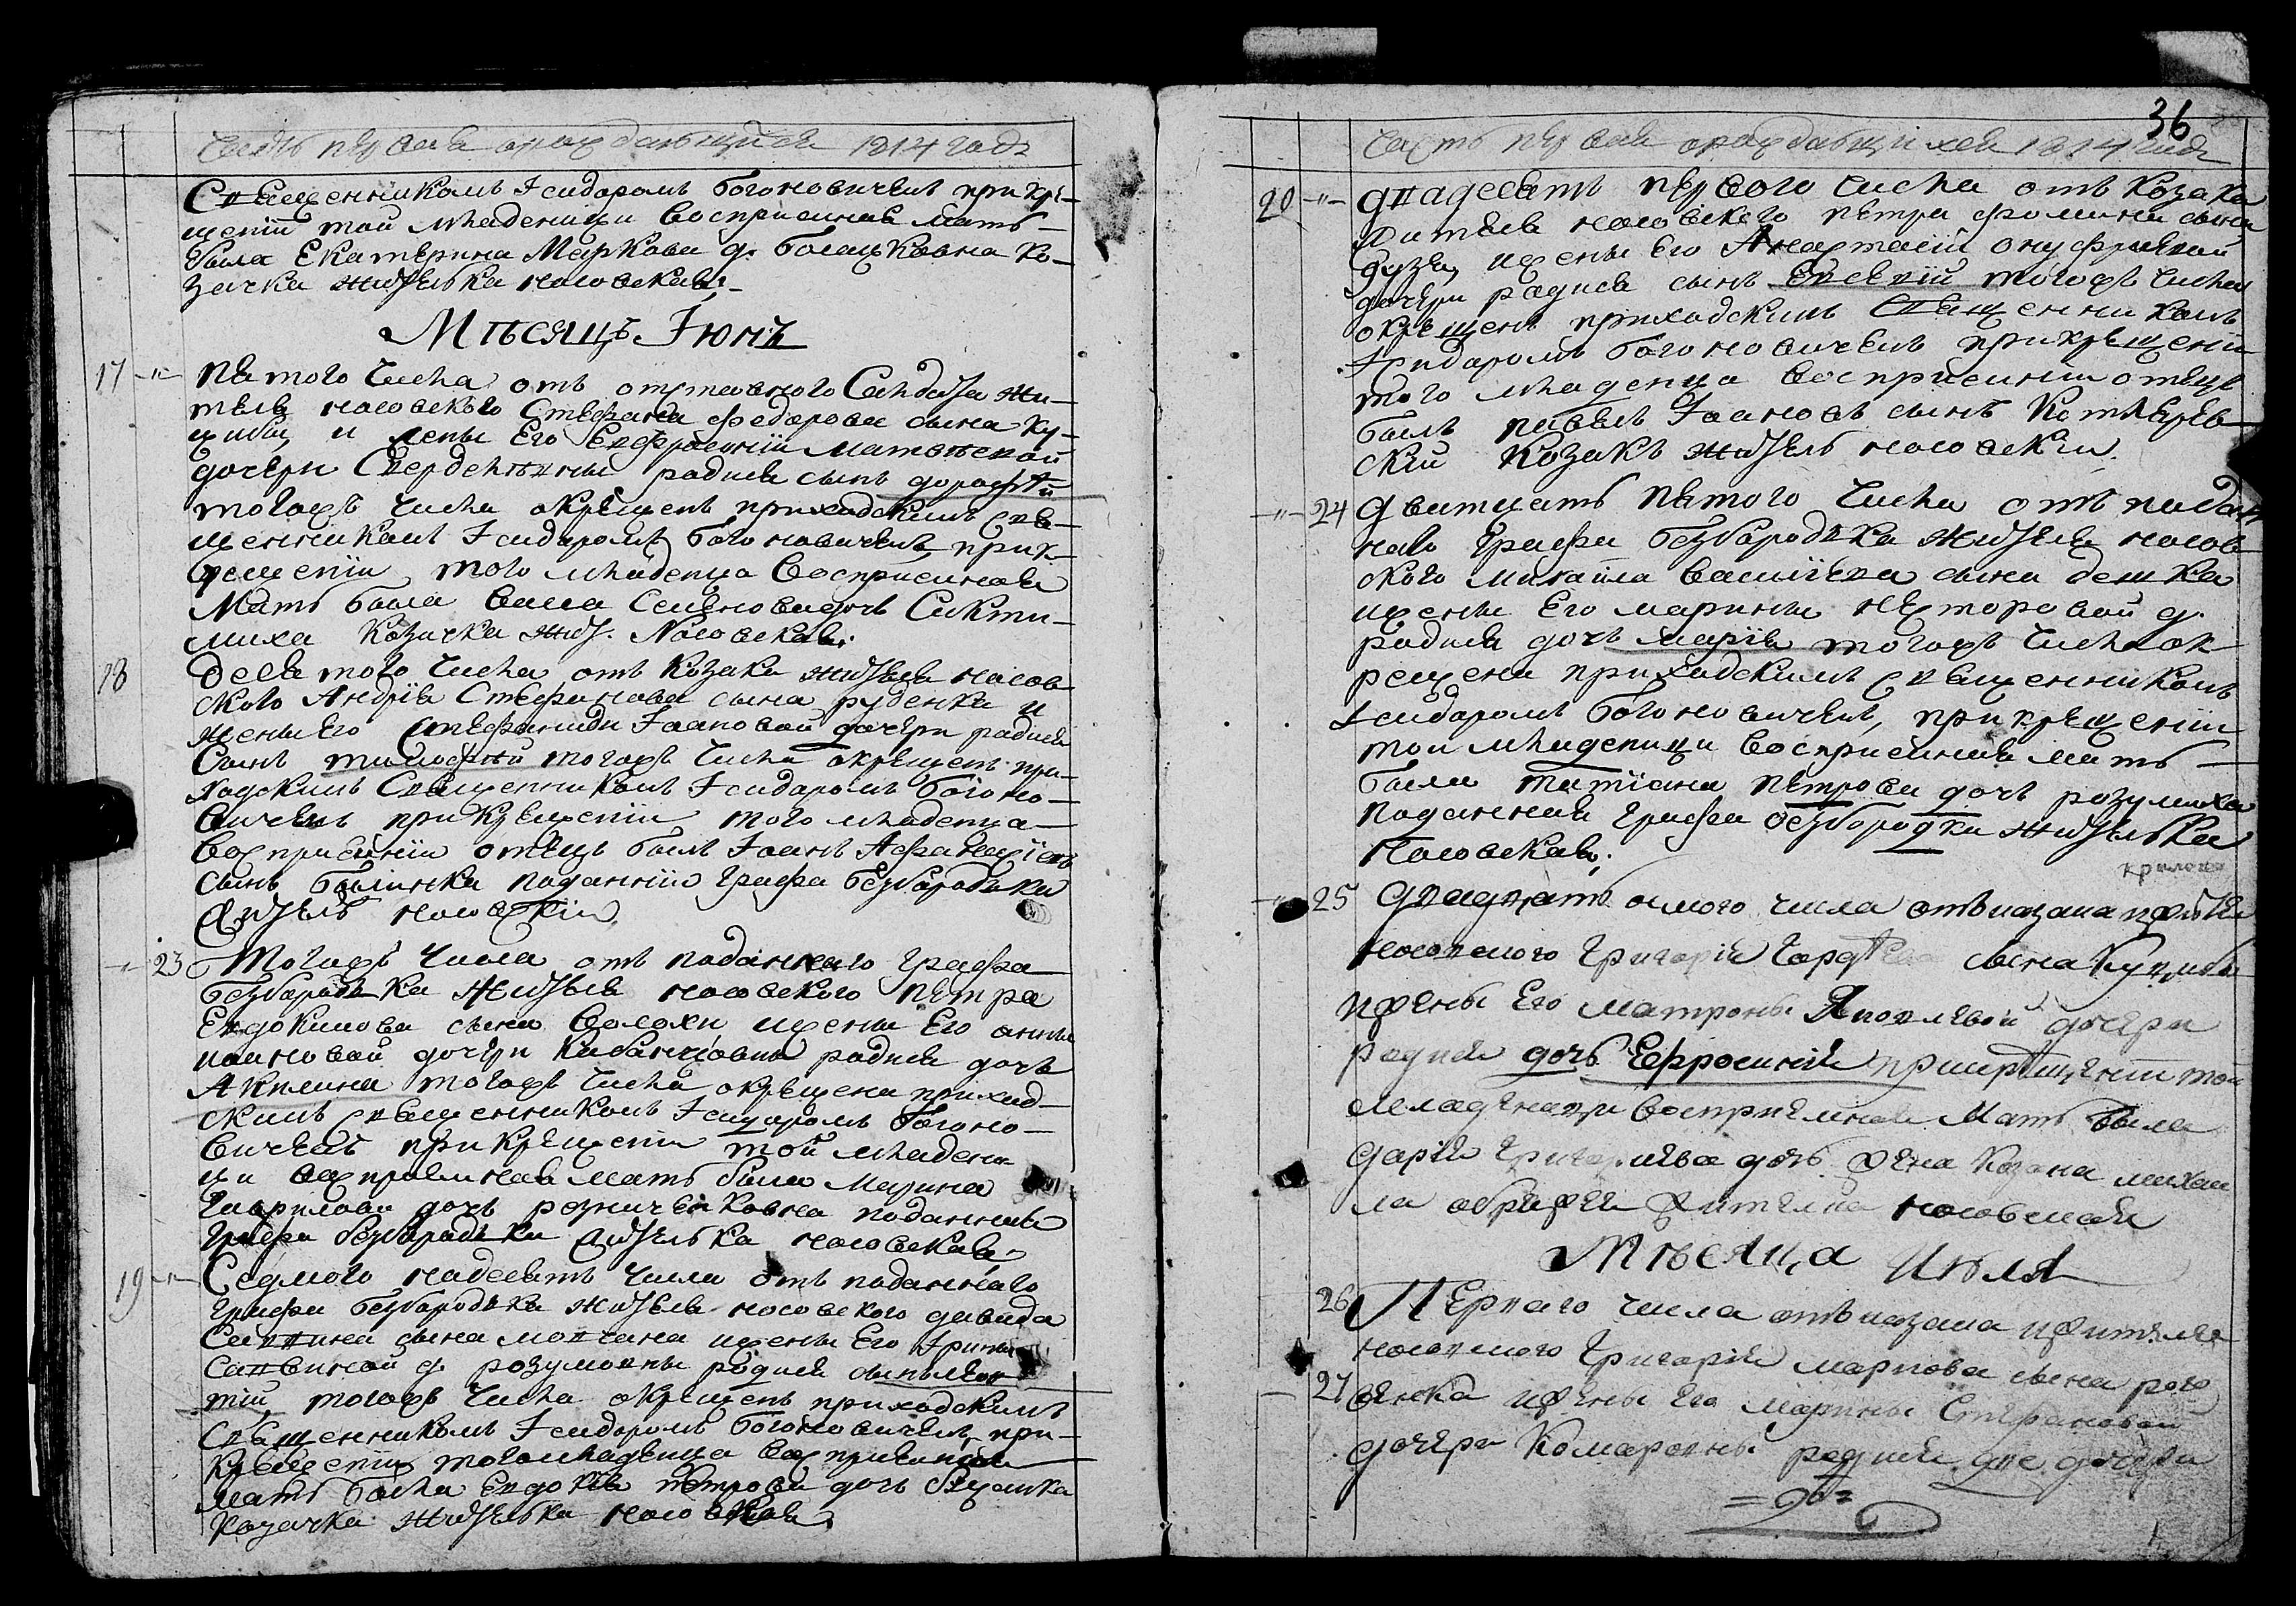 Часть первая о рождающихся 1814 года
Священникомъ Ісидоромъ Богоновичемъ при кре-
щеніи той младеницы восприемная мать
была Екатерина Маркова д. Бошцковна ко-
зачка жителька носовская
Мѣсяцъ Іюнъ
17 пятого числа отъ отставного Сандата жи-
теля носовского Стефана федорова сына Ку-
цибы и жены Его Евфросиніи Матвѣевой
дочери Свердевны родися сынъ дорофѣй
тогожъ числа окрещенъ приходскимъ свя-
щенникомъ Ісидоромъ Богоновичемъ, при к-
рещеніи того младенца восприемная
Мать была васса Семенова дочь
миха козачка жит. Носовская.
18 девятого числа, отъ козака жителя носов
ского Андрія Стефанова сына руденка и
жены его Стефаниди Іоановой дочери родися
Сынъ тимофѣй тогожъ числа окрещенъ при-
ходскимъ Священникомъ Ісидоромъ Богоно-
вичемъ при крещеніи того младенца
восприемній отецъ былъ Іоанъ Афанасіевъ
сынъ поданній графа безбародька
житель носовскій
23 Тогожъ числа отъ поданнаго графа
безбародька жителя носовского Петра
Евдокимова сына волохи ижены Его анны
ивановой дочери родися дочь
Акилина тогожъ числа окрещена приход-
скимъ священникомъ Ісидоромъ Богоно-
вичемъ при крещеніи той младени
ци восприемная мать была Марина
Гаврилова дочь резниченковна поданная
графа безбародька жителька носовская
19 Седмого надесять числа отъ поданнаго
графа безбародька жителя носовского давида
Саввина сына мовчана ижены Его Ірины
Саввиной д. розумовны родися сынъ леон
тій, тогожъ числа окрещенъ приходскимъ
Священникомъ Ісидоромъ Богоновичемъ, при-
крещеніи того младенца восприемная
мать была Евдокія петрова дочь
козачка жителька носовская
36
Часть первая о рождающихся 1814 года
20 двадесять первого числа отъ козака
жителя носовского петра фомина сына
дузя, ижены его Анастасіи онуфріевой
дочери родися сынъ Евсевій тогожъ числа
окрещенъ приходскимъ Священникомъ
Ісидоромъ Богоновичемъ при крещеніи
того младенца восприемній отецъ
былъ павелъ Іоановъ сынъ Котлярев
скій козакъ житель носовскій.
24 дватцать пятого числа отъ подан
наго графа безбародька жителя носов
ского михайла василіева сына дешка
ижены Его марины несторовой д.
родися дочь марія тогожъ числа ок
рещена приходскимъ священникомъ
Ісидоромъ Богоновичемъ, при крещеніи
той младеници восприемная мать
была татіана петрова дочь розумиха
поданная графа безбородка жителька
носовская.
25 двадцать осмого числа отъ козака жителя
носовского григорія гордѣева сына Куцибы
ижены Его матроны Яковлевой дочери
родися дочь Ефросинія при крещеніи той
младеницы восприемная Мать была
дарія григориева дочь жена козака михаи
ла жителка носовская
Мѣсяца Июля
26 Перваго числа отъ козака жителя
носовского григорія маркова сына рого
27 венка ижены Его марины Стефановой
дочери Комаровны родися две дочери